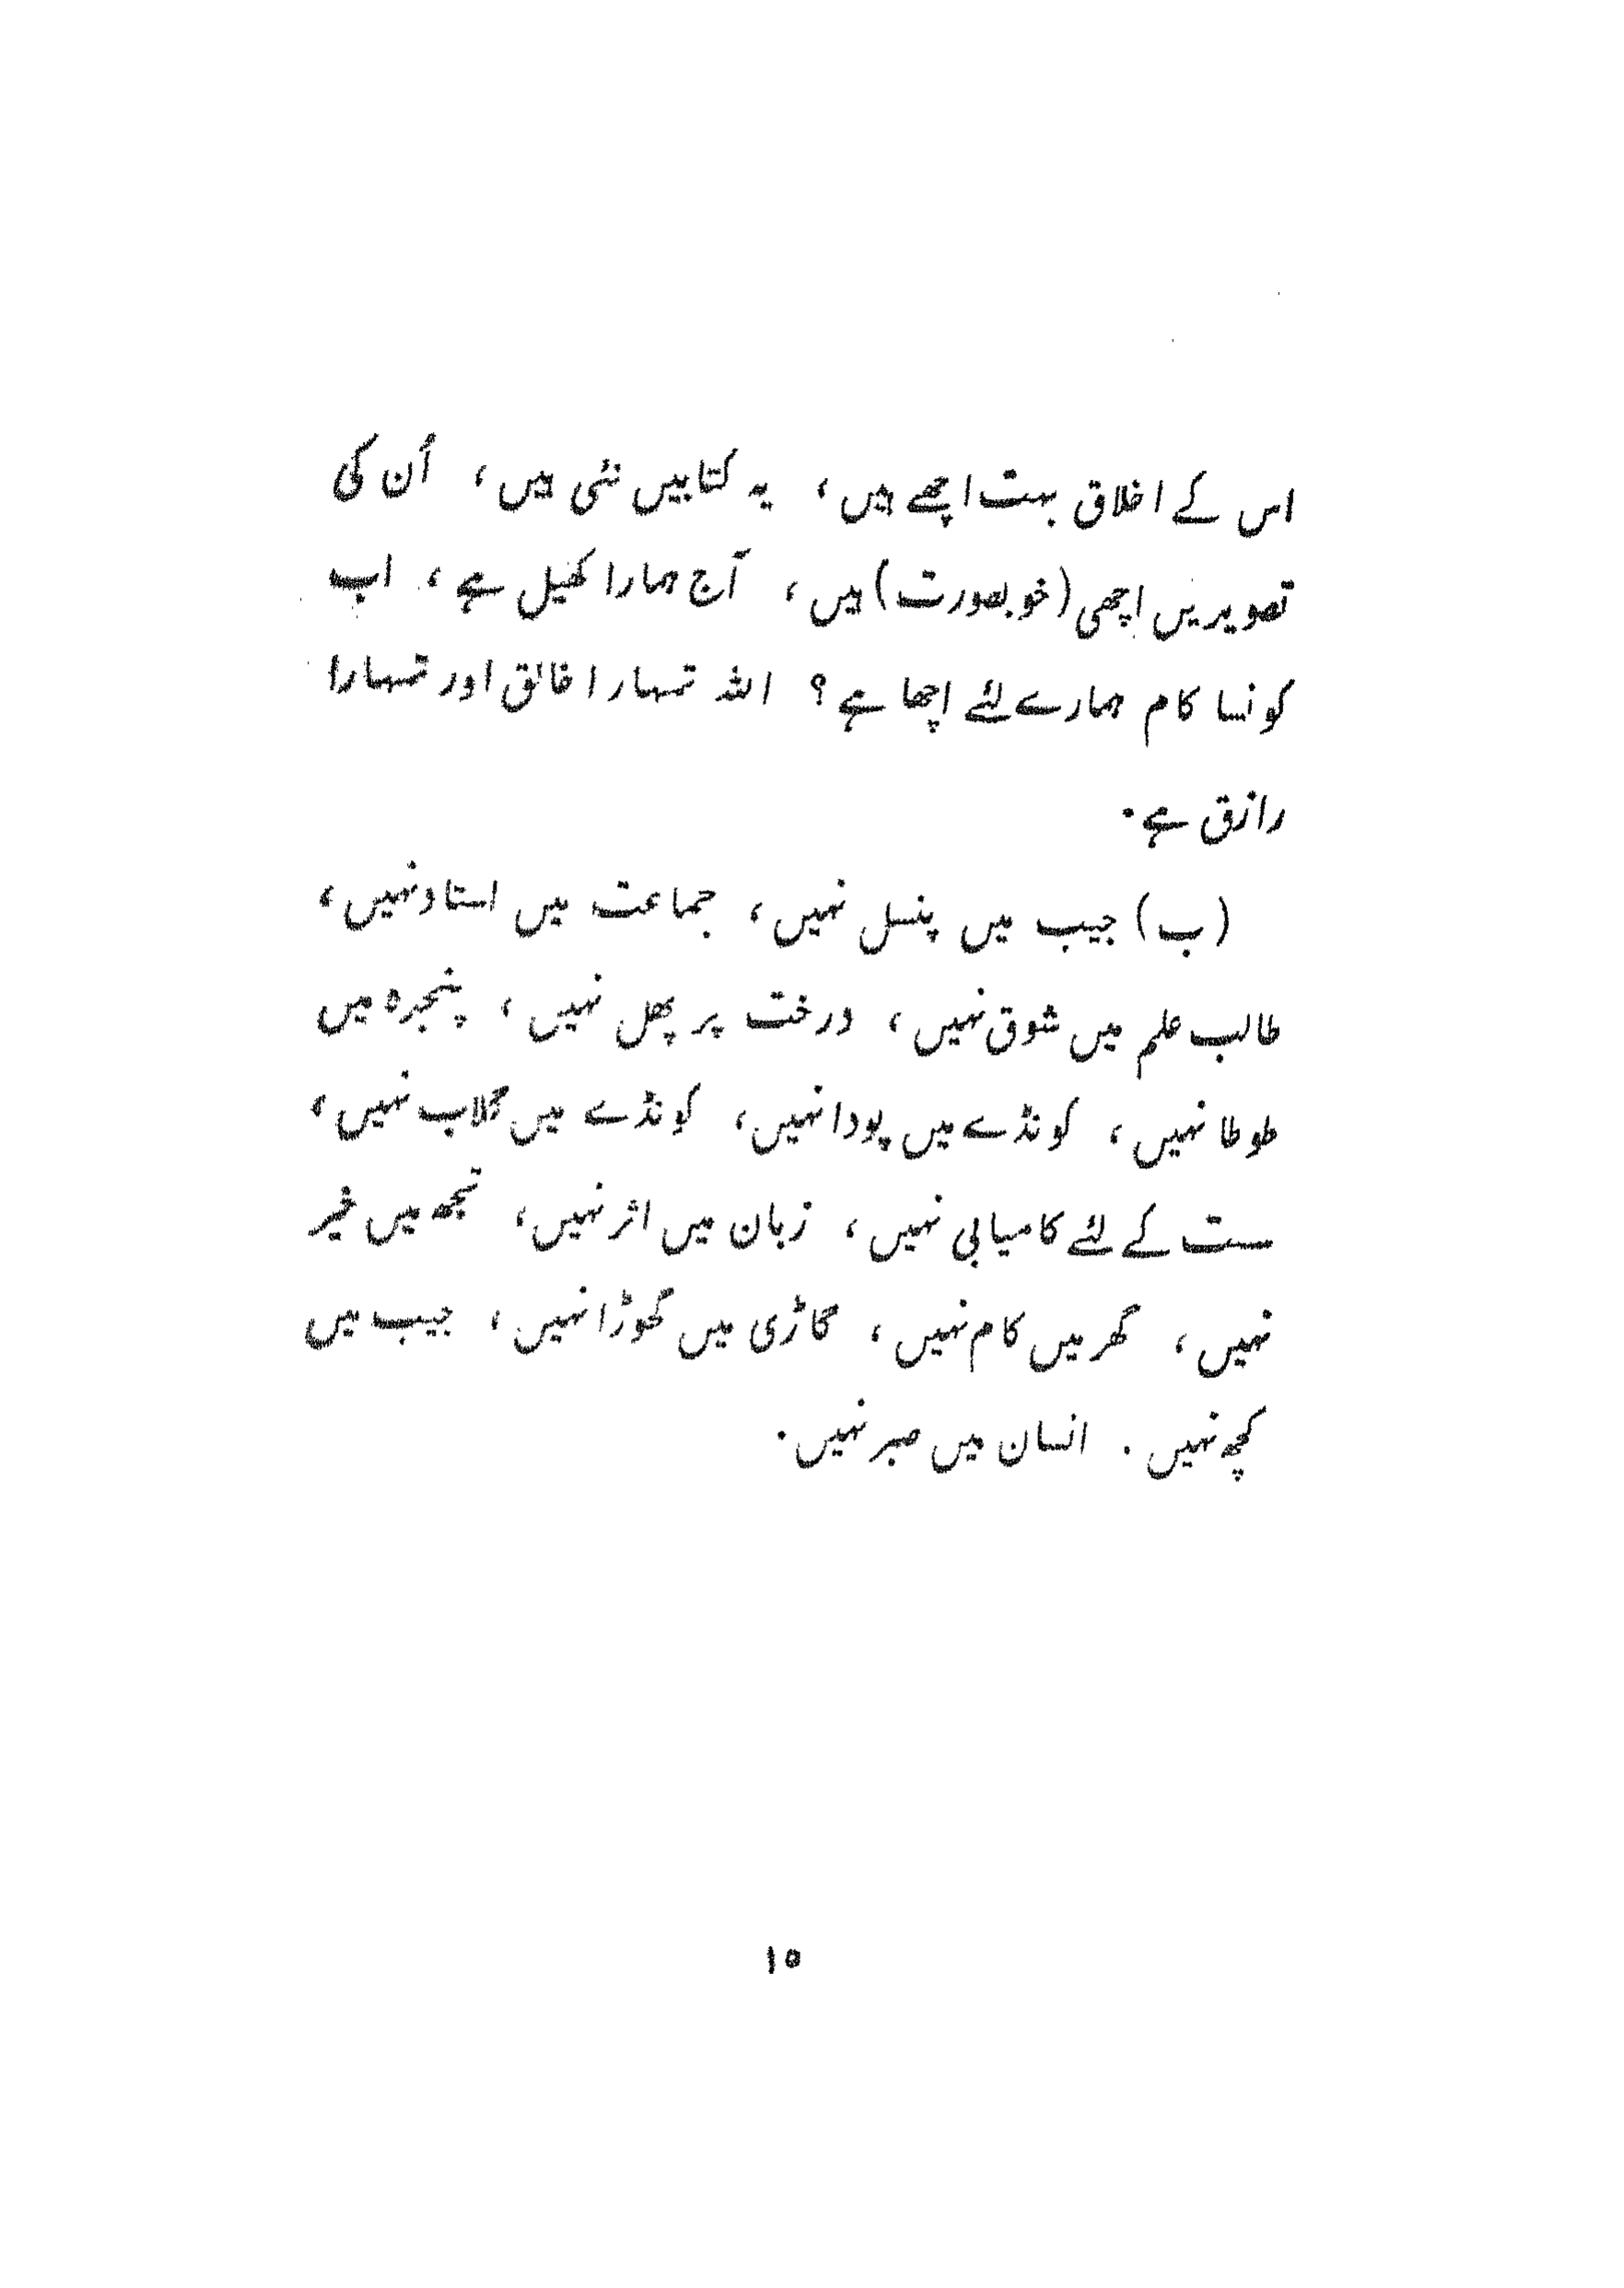 اس کے اخلاق بہت اچھے ہیں، یہ کتابیں نئی ہیں، اُن کی
تصویریں اچھی (خوبصورت) ہیں، آج ہمارا کھیل ہے، اب
کونسا کام ہمارے لئے اچھا ہے؟ اللہ تمہارا خالق اور تمہارا
رازق ہے۔
(ب) جیب میں پنسل نہیں، جماعت میں استاد نہیں،
طالب علم میں شوق نہیں، درخت پر پھل نہیں، پنجرہ میں
طوطا نہیں، کونڈے میں پودا نہیں، کونڈے میں گلاب نہیں،
ست کے لئے کامیابی نہیں، زبان میں اثر نہیں، تجھ میں خیر
نہیں، گھر میں کام نہیں، گاڑی میں گھوڑا نہیں، جیب میں
کچھ نہیں۔ انسان میں صبر نہیں۔
۱۵